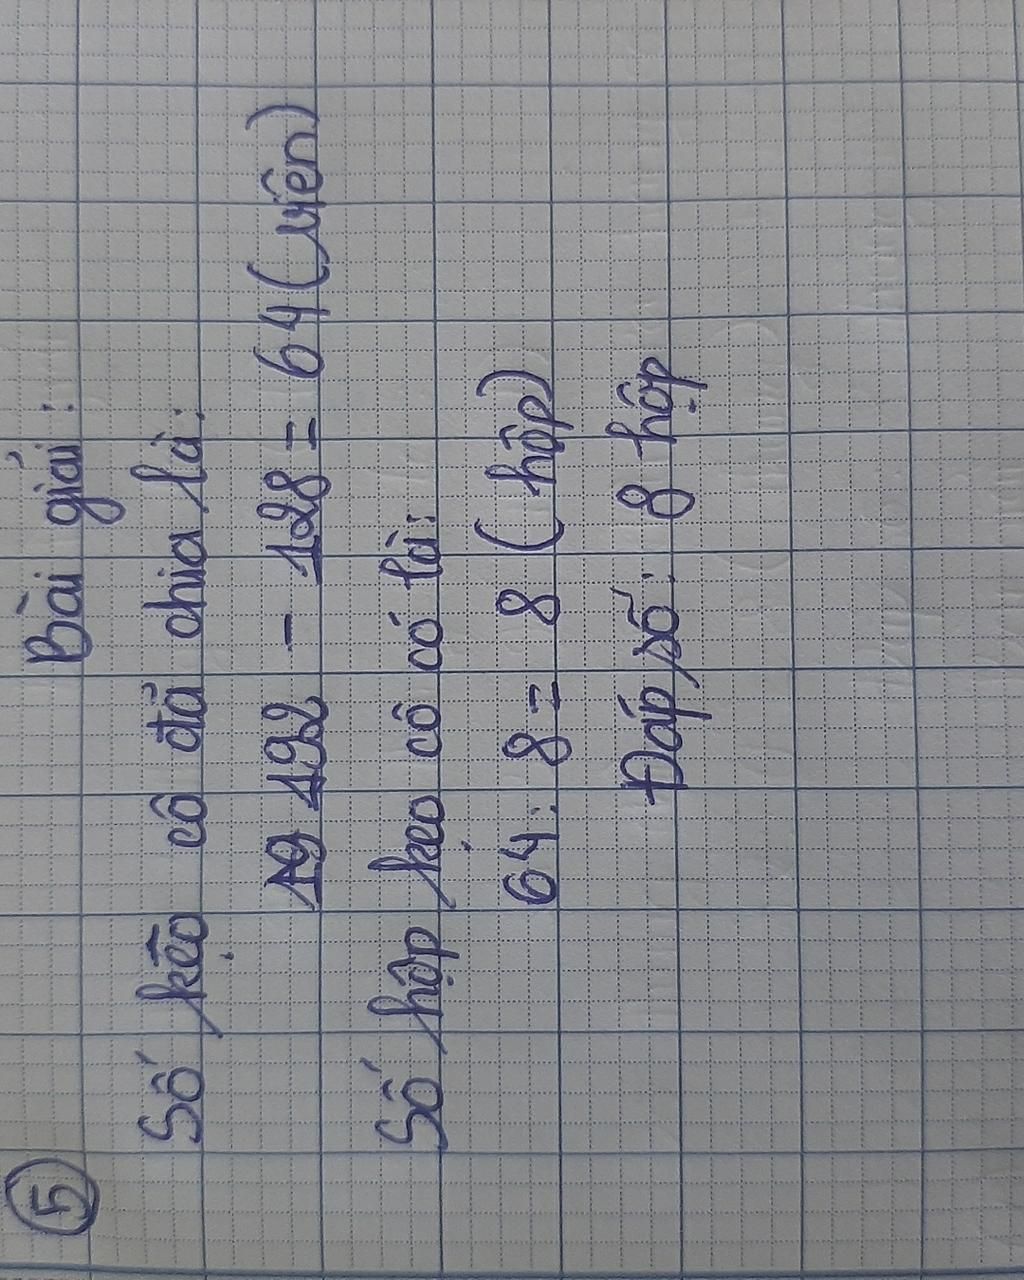 5
Bài giải:
Số kẹo cô đã chia là:
19 192 - 128 = 64 (viên)
Số hộp kẹo cô có là:
64 : 8 = 8 (hộp)
Đáp số: 8 hộp